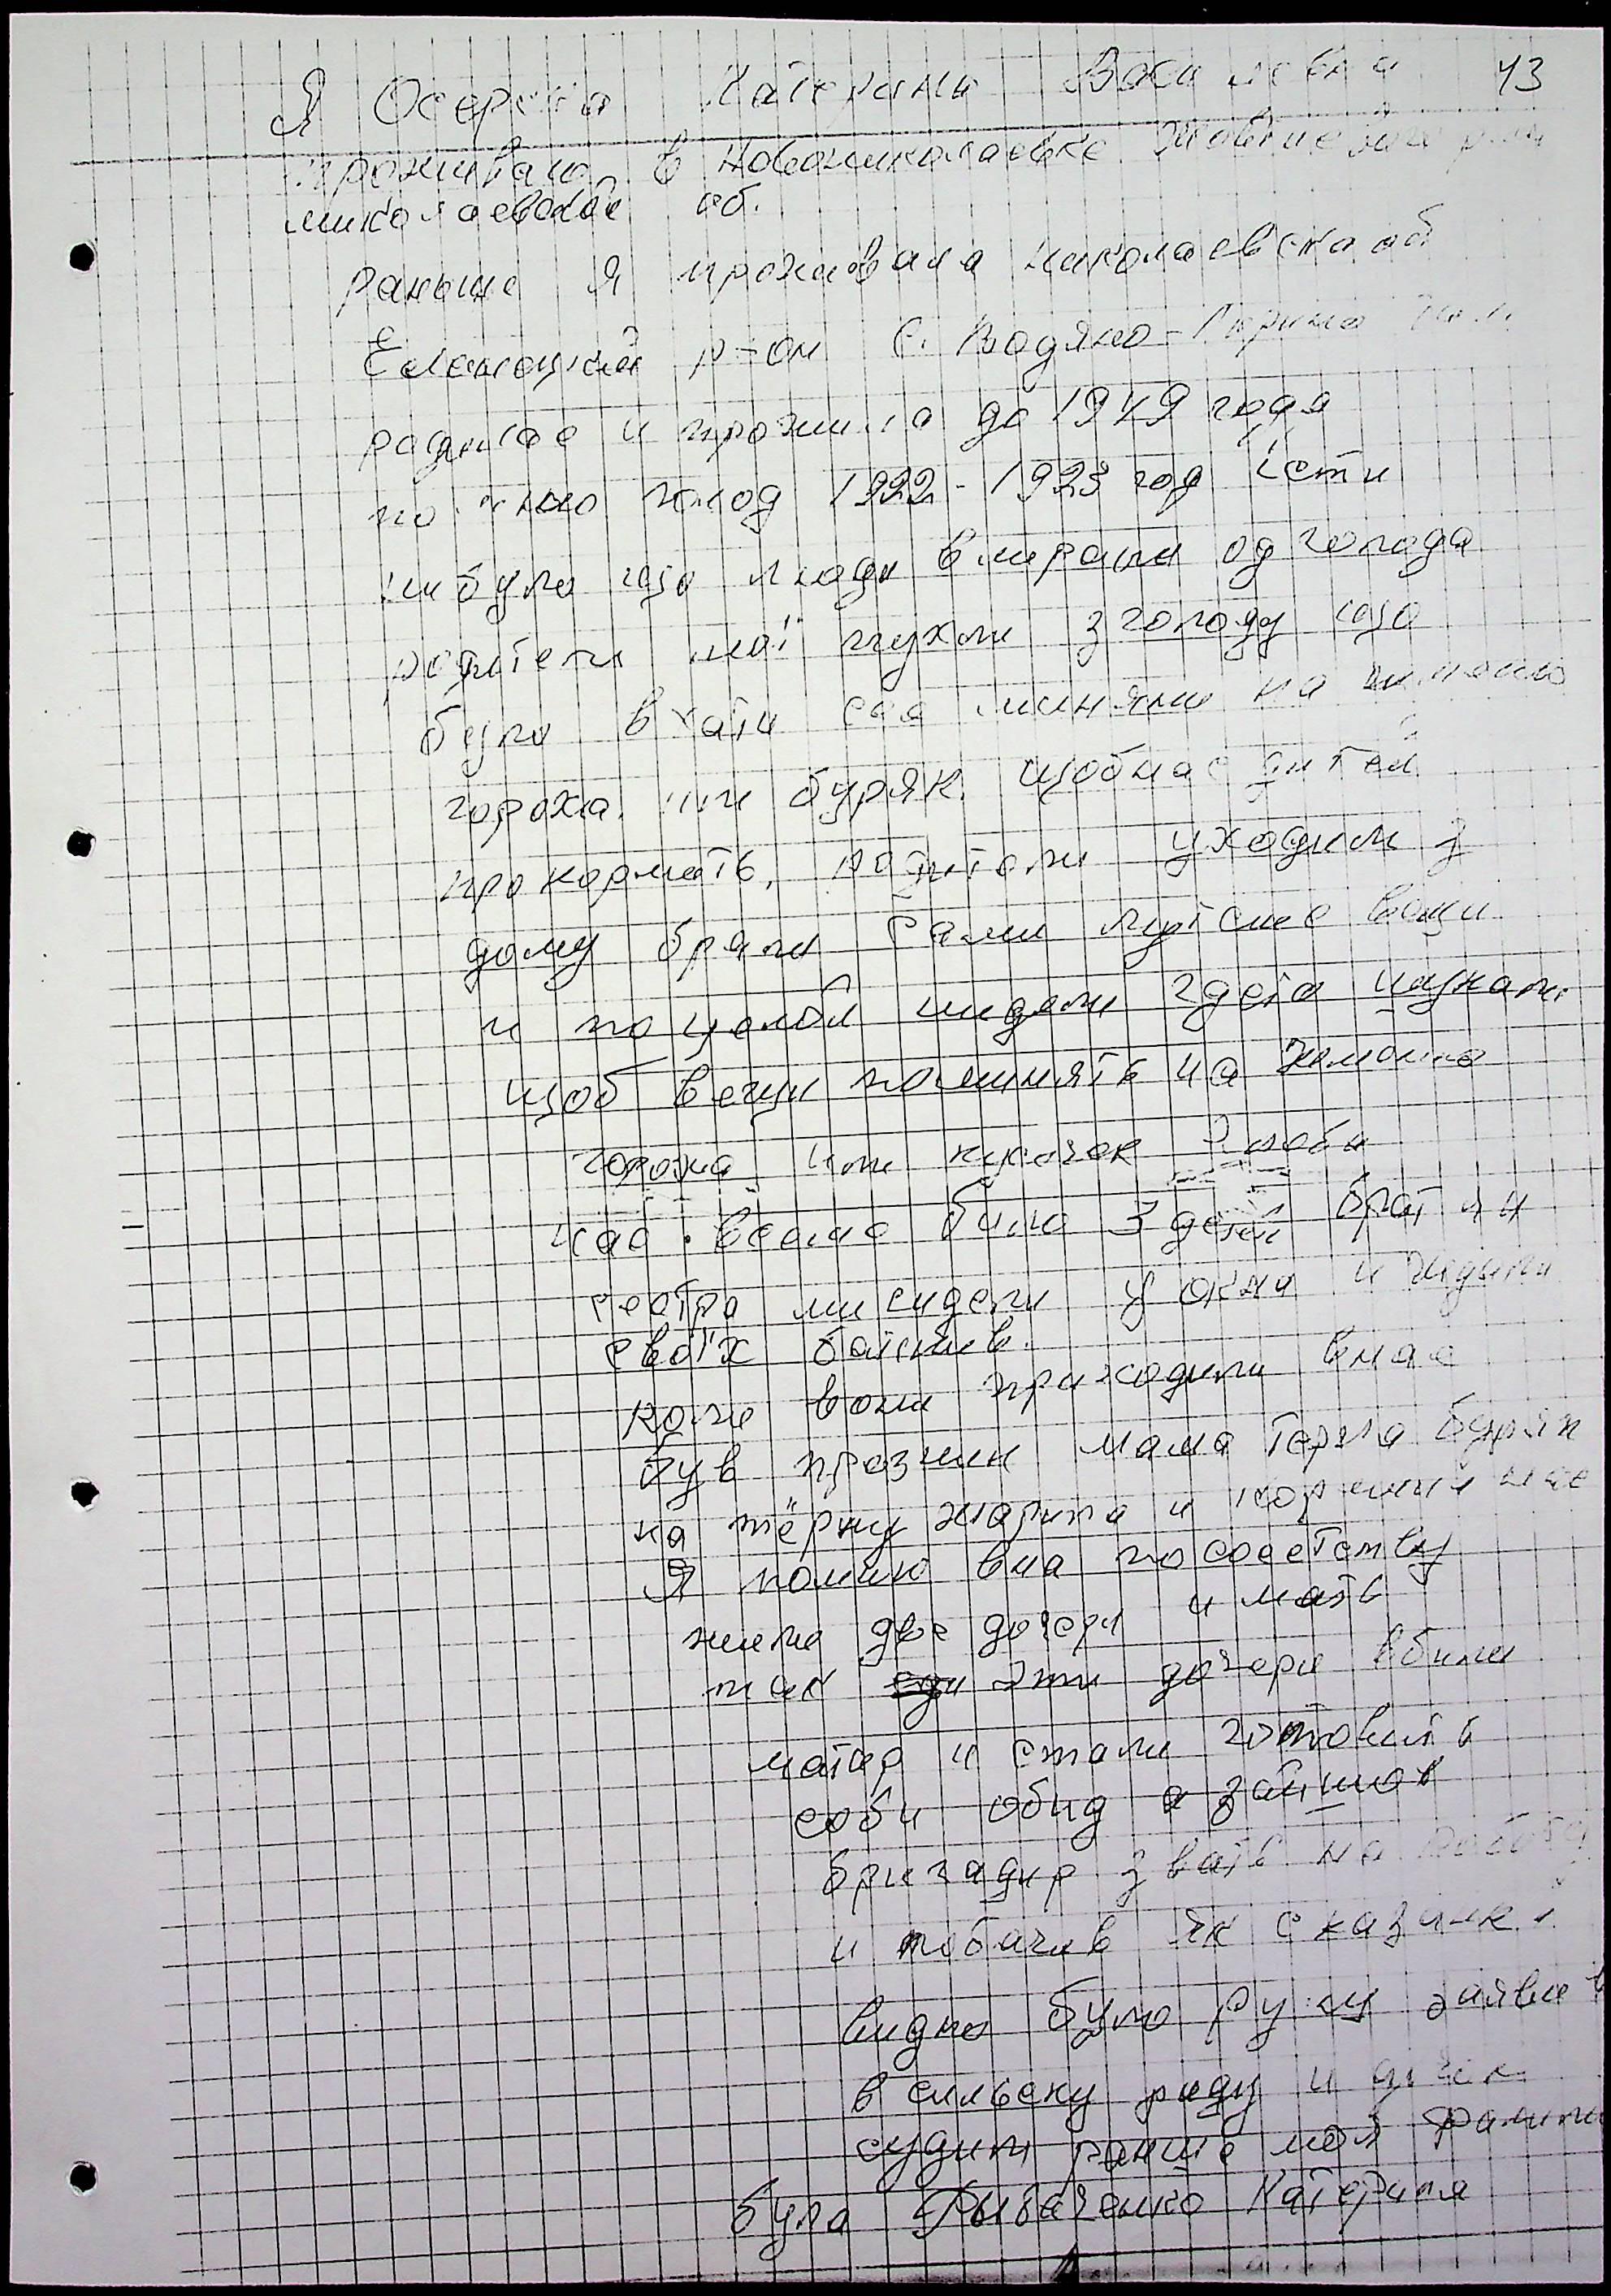 Я Осерская Катерина Васильевна 43
проживаю в Новониколаевке Жовтневого р-на
миколаевской об.
Раньше я проживала николаевска об
Еланецкий р-он с. Водяно-Лорино там
радилае и прожила до 1949 года
помню голод 1922-1923 год їсти
ни було що люди вмирали од голода
родители мої пухли з голоду що
було в хати сьо миняли на жменю
гороха или буряк. щоб нас дитей
прокормать, родители уходили з
дому брали самы лутьше вещи
и по целой нидели гдето шукали
щоб вещи поминять на жменю
гороха или кусочек хлоба
нас всего било 3 детей брат я и
сестра ми сидели у окна и ждали
своїх батькив.
коли вони приходили в нас
був празник мама терла буряк
на тёрку жарила и кормили нас
Я помню вна по сосетству
жила две дочери и мать
так эти дочери вбили
матир и стали готовить
соби обид а зайшов
бригадир звать на работу
и побачив як сказанк
видно було руку заявив
в сильску раду и дочек
судили раньше моя фамилия
була Рыбаченко Катерина